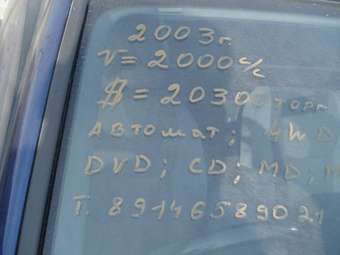 2003г.
V=2000 с/с
$=20300 торг
АВТОМАТ; 4WD
DVD; CD; MD;
Т. 89146589021